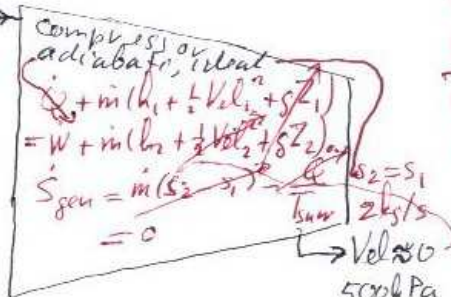 compressor
adiabatic, ideal
Q̇ + ṁ(h₁ + ½Vel₁² + gZ₁)
= Ẇ + ṁ(h₂ + ½Vel₂² + gZ₂)
Ṡgen = ṁ(s₂ - s₁) - Q̇/Tsurr
= 0
s₂ = s₁
2 kg/s
Vel ≈ 0
500 kPa